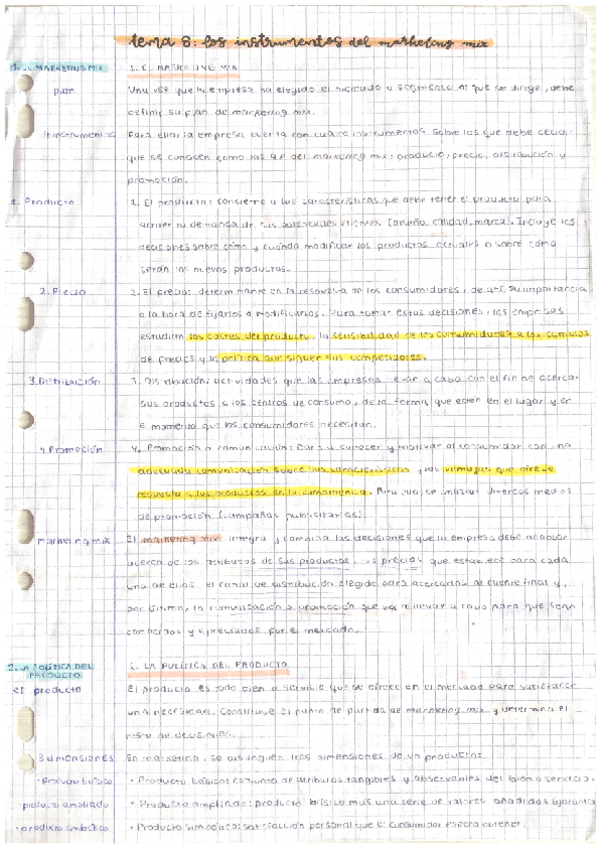 tema 8: los instrumentos del marketing mix
1. EL MARKETING MIX
1. EL MARKETING MIX
plan
Una vez que la empresa ha elegido el mercado o segmento al que se dirige, debe
definir su plan de marketing mix.
instrumentos
Para ello, la empresa cuenta con cuatro instrumentos sobre los que debe decidir
que se conocen como las 4P del marketing mix: producto, precio, distribución y
promoción.
1. Producto
1. El producto: concierne a las características que debe tener el producto para
atraer la demanda de sus potenciales clientes (diseño, calidad, marca). Incluye las
decisiones sobre cómo y cuándo modificar los productos actuales o sobre cómo
serán los nuevos productos.
2. Precio
2. El precio: determinante en la respuesta de los consumidores, de ahí su importancia
a la hora de fijarlos o modificarlos. Para tomar estas decisiones, las empresas
estudian los costes del producto, la sensibilidad de los consumidores a los cambios
de precios y la política que siguen sus competidores.
3. Distribución
3. Distribución: actividades que las empresas llevan a cabo con el fin de acercar
sus productos a los centros de consumo, de tal forma que estén en el lugar y en
el momento que los consumidores necesitan.
4. Promoción
4. Promoción o comunicación: Dar a conocer y motivar al consumidor con una
adecuada comunicación sobre las características y las ventajas que ofrece
respecto a los productos de la competencia. Para ello se utilizan diversos medios
de promoción (campañas publicitarias)
marketing mix
El marketing mix integra y combina las decisiones que la empresa debe adoptar
acerca de los atributos de sus productos, los precios que establece para cada
uno de ellos, el canal de distribución elegido para acercarlos al cliente final y,
por último, la comunicación o promoción que va a llevar a cabo para que sean
conocidos y apreciados por el mercado.
2. LA POLÍTICA DEL
PRODUCTO
2. LA POLÍTICA DEL PRODUCTO
el producto
El producto es todo bien o servicio que se ofrece en el mercado para satisfacer
una necesidad. Constituye el punto de partida de marketing mix y determina el
resto de decisiones.
3 dimensiones
En marketing, se distinguen tres dimensiones de un producto:
· Producto básico
· Producto básico: conjunto de atributos tangibles y observables del bien o servicio.
· producto ampliado
· Producto ampliado: producto básico más una serie de valores añadidos (garantía
· producto simbólico
· Producto simbólico: satisfacción personal que el consumidor espera obtener.